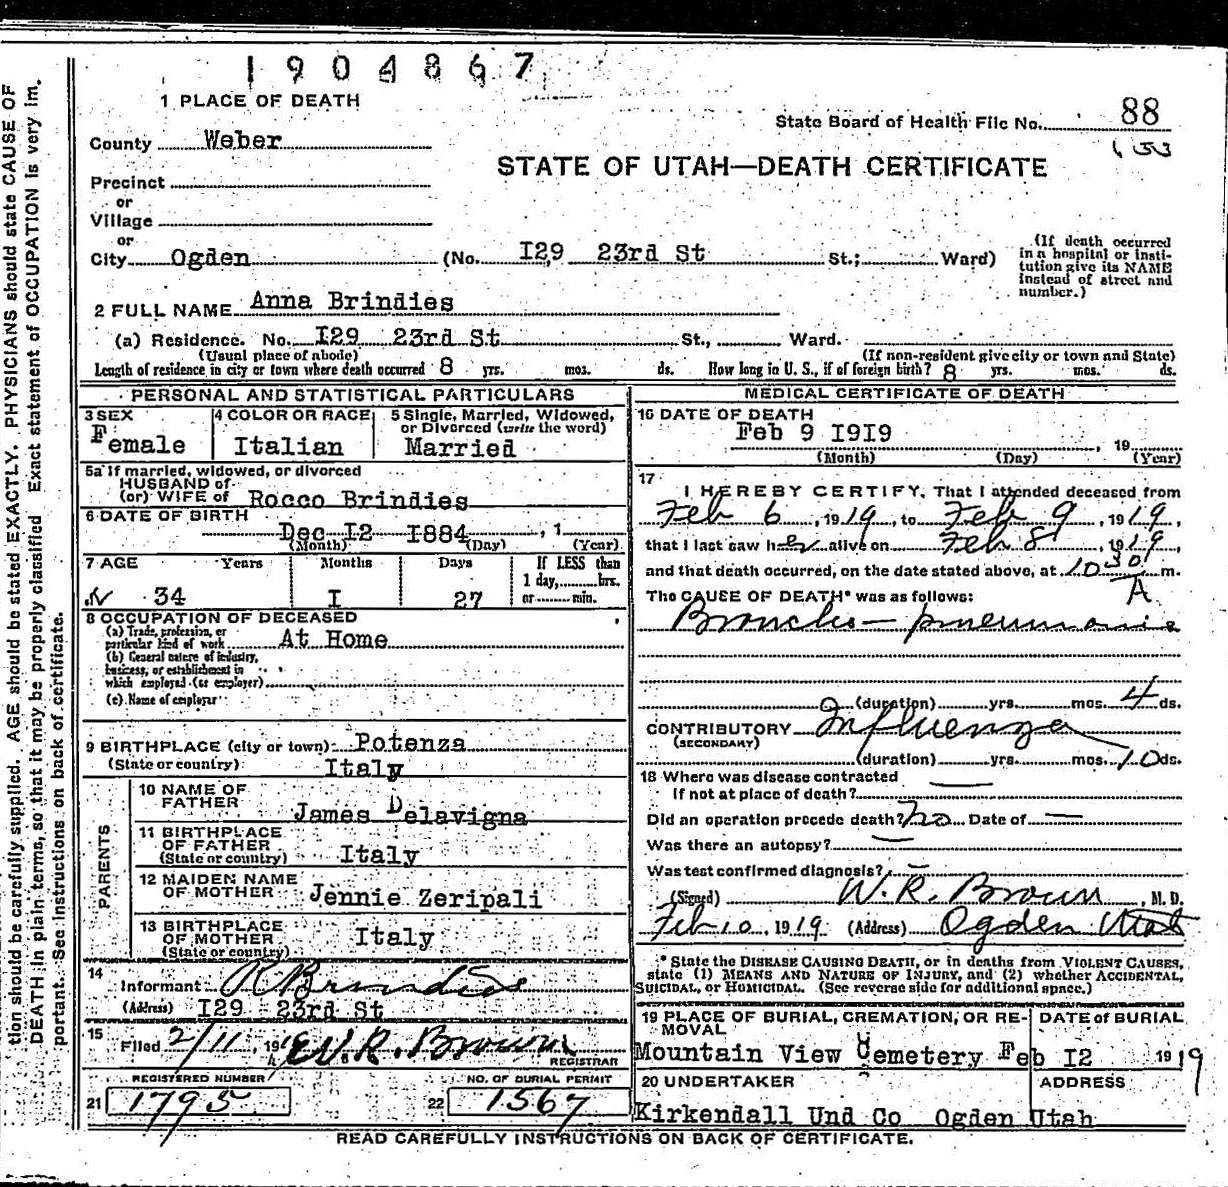 1904867
1 PLACE OF DEATH
State Board of Health File No. 88
County Weber
STATE OF UTAH—DEATH CERTIFICATE
Precinct
or
Village
or
City Ogden (No. I29 23rd St St.; Ward)
(If death occurred in a hospital or institution give its NAME instead of street and number.)
2 FULL NAME Anna Brindies
(a) Residence. No. I29 23rd St St., Ward.
(Usual place of abode) (If non-resident give city or town and State)
Length of residence in city or town where death occurred 8 yrs. mos. ds. How long in U. S., if of foreign birth? 8 yrs. mos. ds.
PERSONAL AND STATISTICAL PARTICULARS
3 SEX
Female
4 COLOR OR RACE
Italian
5 Single, Married, Widowed, or Divorced (write the word)
Married
5a If married, widowed, or divorced
HUSBAND of
(or) WIFE of Rocco Brindies
6 DATE OF BIRTH
Dec I2 I884, 1
(Month) (Day) (Year)
7 AGE Years Months Days If LESS than
1 day, hrs.
or min.
34 I 27
8 OCCUPATION OF DECEASED
(a) Trade, profession, or
particular kind of work At Home
(b) General nature of industry,
business, or establishment in
which employed (or employer)
(c) Name of employer
9 BIRTHPLACE (city or town) Potenza
(State or country) Italy
PARENTS
10 NAME OF
FATHER James Delavigna
11 BIRTHPLACE
OF FATHER
(State or country) Italy
12 MAIDEN NAME
OF MOTHER Jennie Zeripali
13 BIRTHPLACE
OF MOTHER
(State or country) Italy
14
Informant R Brindies
(Address) I29 23rd St
15
Filed 2/11, 191 W. R. Brown
REGISTRAR
REGISTERED NUMBER
21 1795
NO. OF BURIAL PERMIT
22 1567
MEDICAL CERTIFICATE OF DEATH
16 DATE OF DEATH
Feb 9 I9I9, 19
(Month) (Day) (Year)
17
I HEREBY CERTIFY, That I attended deceased from
Feb 6, 1919, to Feb 9, 1919,
that I last saw her alive on Feb 8, 1919,
and that death occurred, on the date stated above, at 10 30 A m.
The CAUSE OF DEATH* was as follows:
Broncho-pneumonia
(duration) yrs. mos. 4 ds.
CONTRIBUTORY Influenza
(SECONDARY)
(duration) yrs. mos. 10 ds.
18 Where was disease contracted
If not at place of death? —
Did an operation precede death? No Date of —
Was there an autopsy? —
Was test confirmed diagnosis? —
(Signed) W. R. Brown, M. D.
Feb 10, 1919 (Address) Ogden Utah
* State the DISEASE CAUSING DEATH, or in deaths from VIOLENT CAUSES,
state (1) MEANS AND NATURE OF INJURY, and (2) whether ACCIDENTAL,
SUICIDAL, or HOMICIDAL. (See reverse side for additional space.)
19 PLACE OF BURIAL, CREMATION, OR RE-
MOVAL
DATE of BURIAL
Mountain View Cemetery Feb I2 1919
20 UNDERTAKER ADDRESS
Kirkendall Und Co Ogden Utah
READ CAREFULLY INSTRUCTIONS ON BACK OF CERTIFICATE.
tion should be carefully supplied. AGE should be stated EXACTLY. PHYSICIANS should state CAUSE OF
DEATH in plain terms, so that it may be properly classified. Exact statement of OCCUPATION is very im-
portant. See instructions on back of certificate.